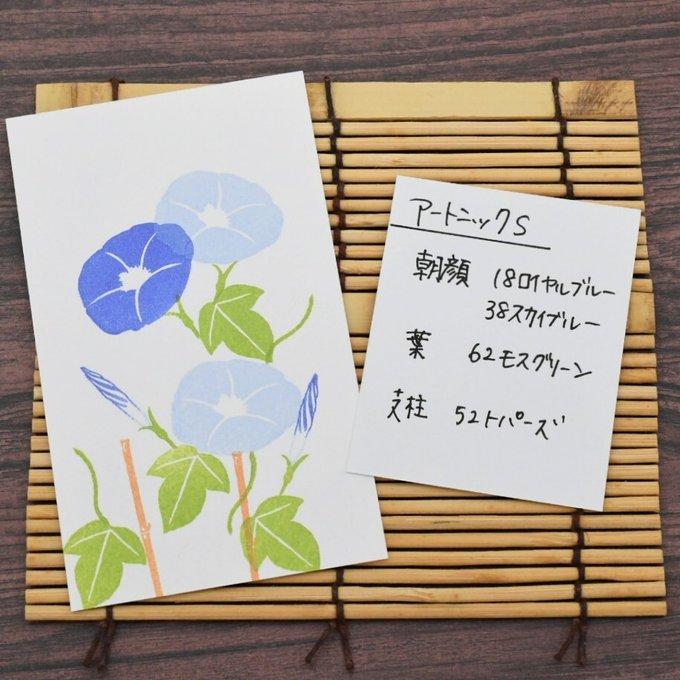 アートニックS
朝顔 18ロイヤルブルー
38スカイブルー
葉 62モスグリーン
支柱 52トパーズ